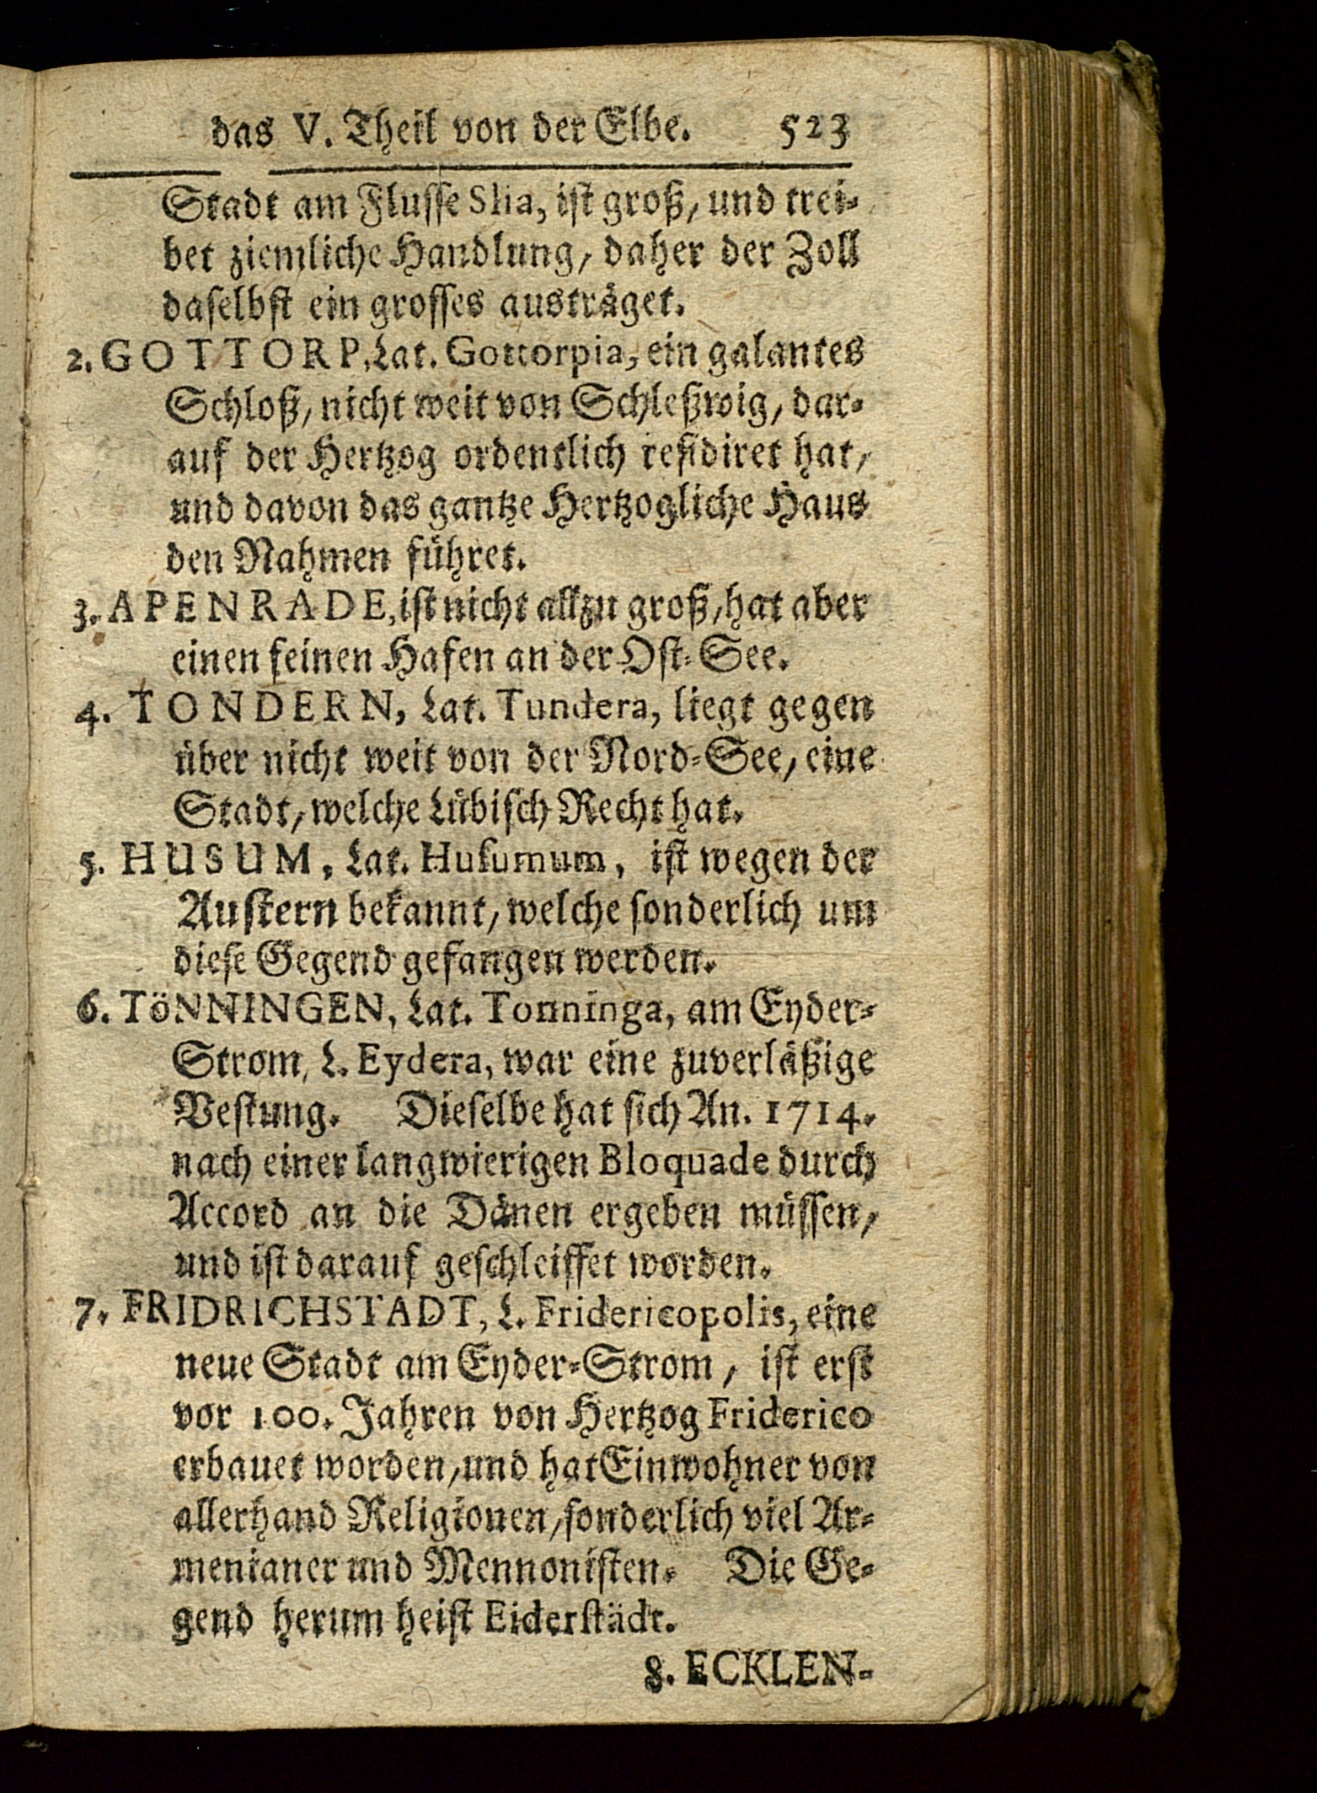 das V. Theil von der Elbe. 523
Stadt am Flusse Slia, ist groß, und trei-
bet ziemliche Handlung, daher der Zoll
daselbst ein grosses austräget.
2. GOTTORP, Lat. Gottorpia, ein galantes
Schloß, nicht weit von Schleßwig, dar-
auf der Hertzog ordentlich residiret hat,
und davon das gantze Hertzogliche Haus
den Nahmen führet.
3. APENRADE, ist nicht allzu groß, hat aber
einen feinen Hafen an der Ost-See.
4. TONDERN, Lat. Tundera, liegt gegen
über nicht weit von der Nord-See, eine
Stadt, welche Lübisch Recht hat.
5. HUSUM, Lat. Husumum, ist wegen der
Austern bekannt, welche sonderlich um
diese Gegend gefangen werden.
6. TöNNINGEN, Lat. Tonninga, am Eyder-
Strom, L. Eydera, war eine zuverläßige
Vestung. Dieselbe hat sich An. 1714.
nach einer langwierigen Bloquade durch
Accord an die Dänen ergeben müssen,
und ist darauf geschleiffet worden.
7. FRIDRICHSTADT, L. Fridericopolis, eine
neue Stadt am Eyder-Strom, ist erst
vor 100. Jahren von Hertzog Friderico
erbauet worden, und hat Einwohner von
allerhand Religionen, sonderlich viel Ar-
menianer und Mennonisten. Die Ge-
gend herum heist Eiderstädt.
8. ECKLEN-